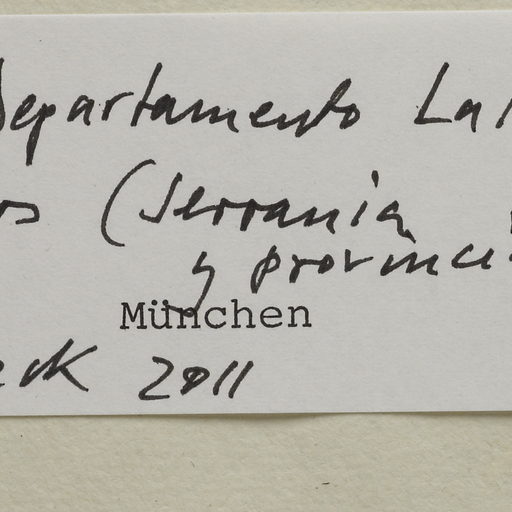 Departamento La
os (Serrania
y provinci
München
eck 2011